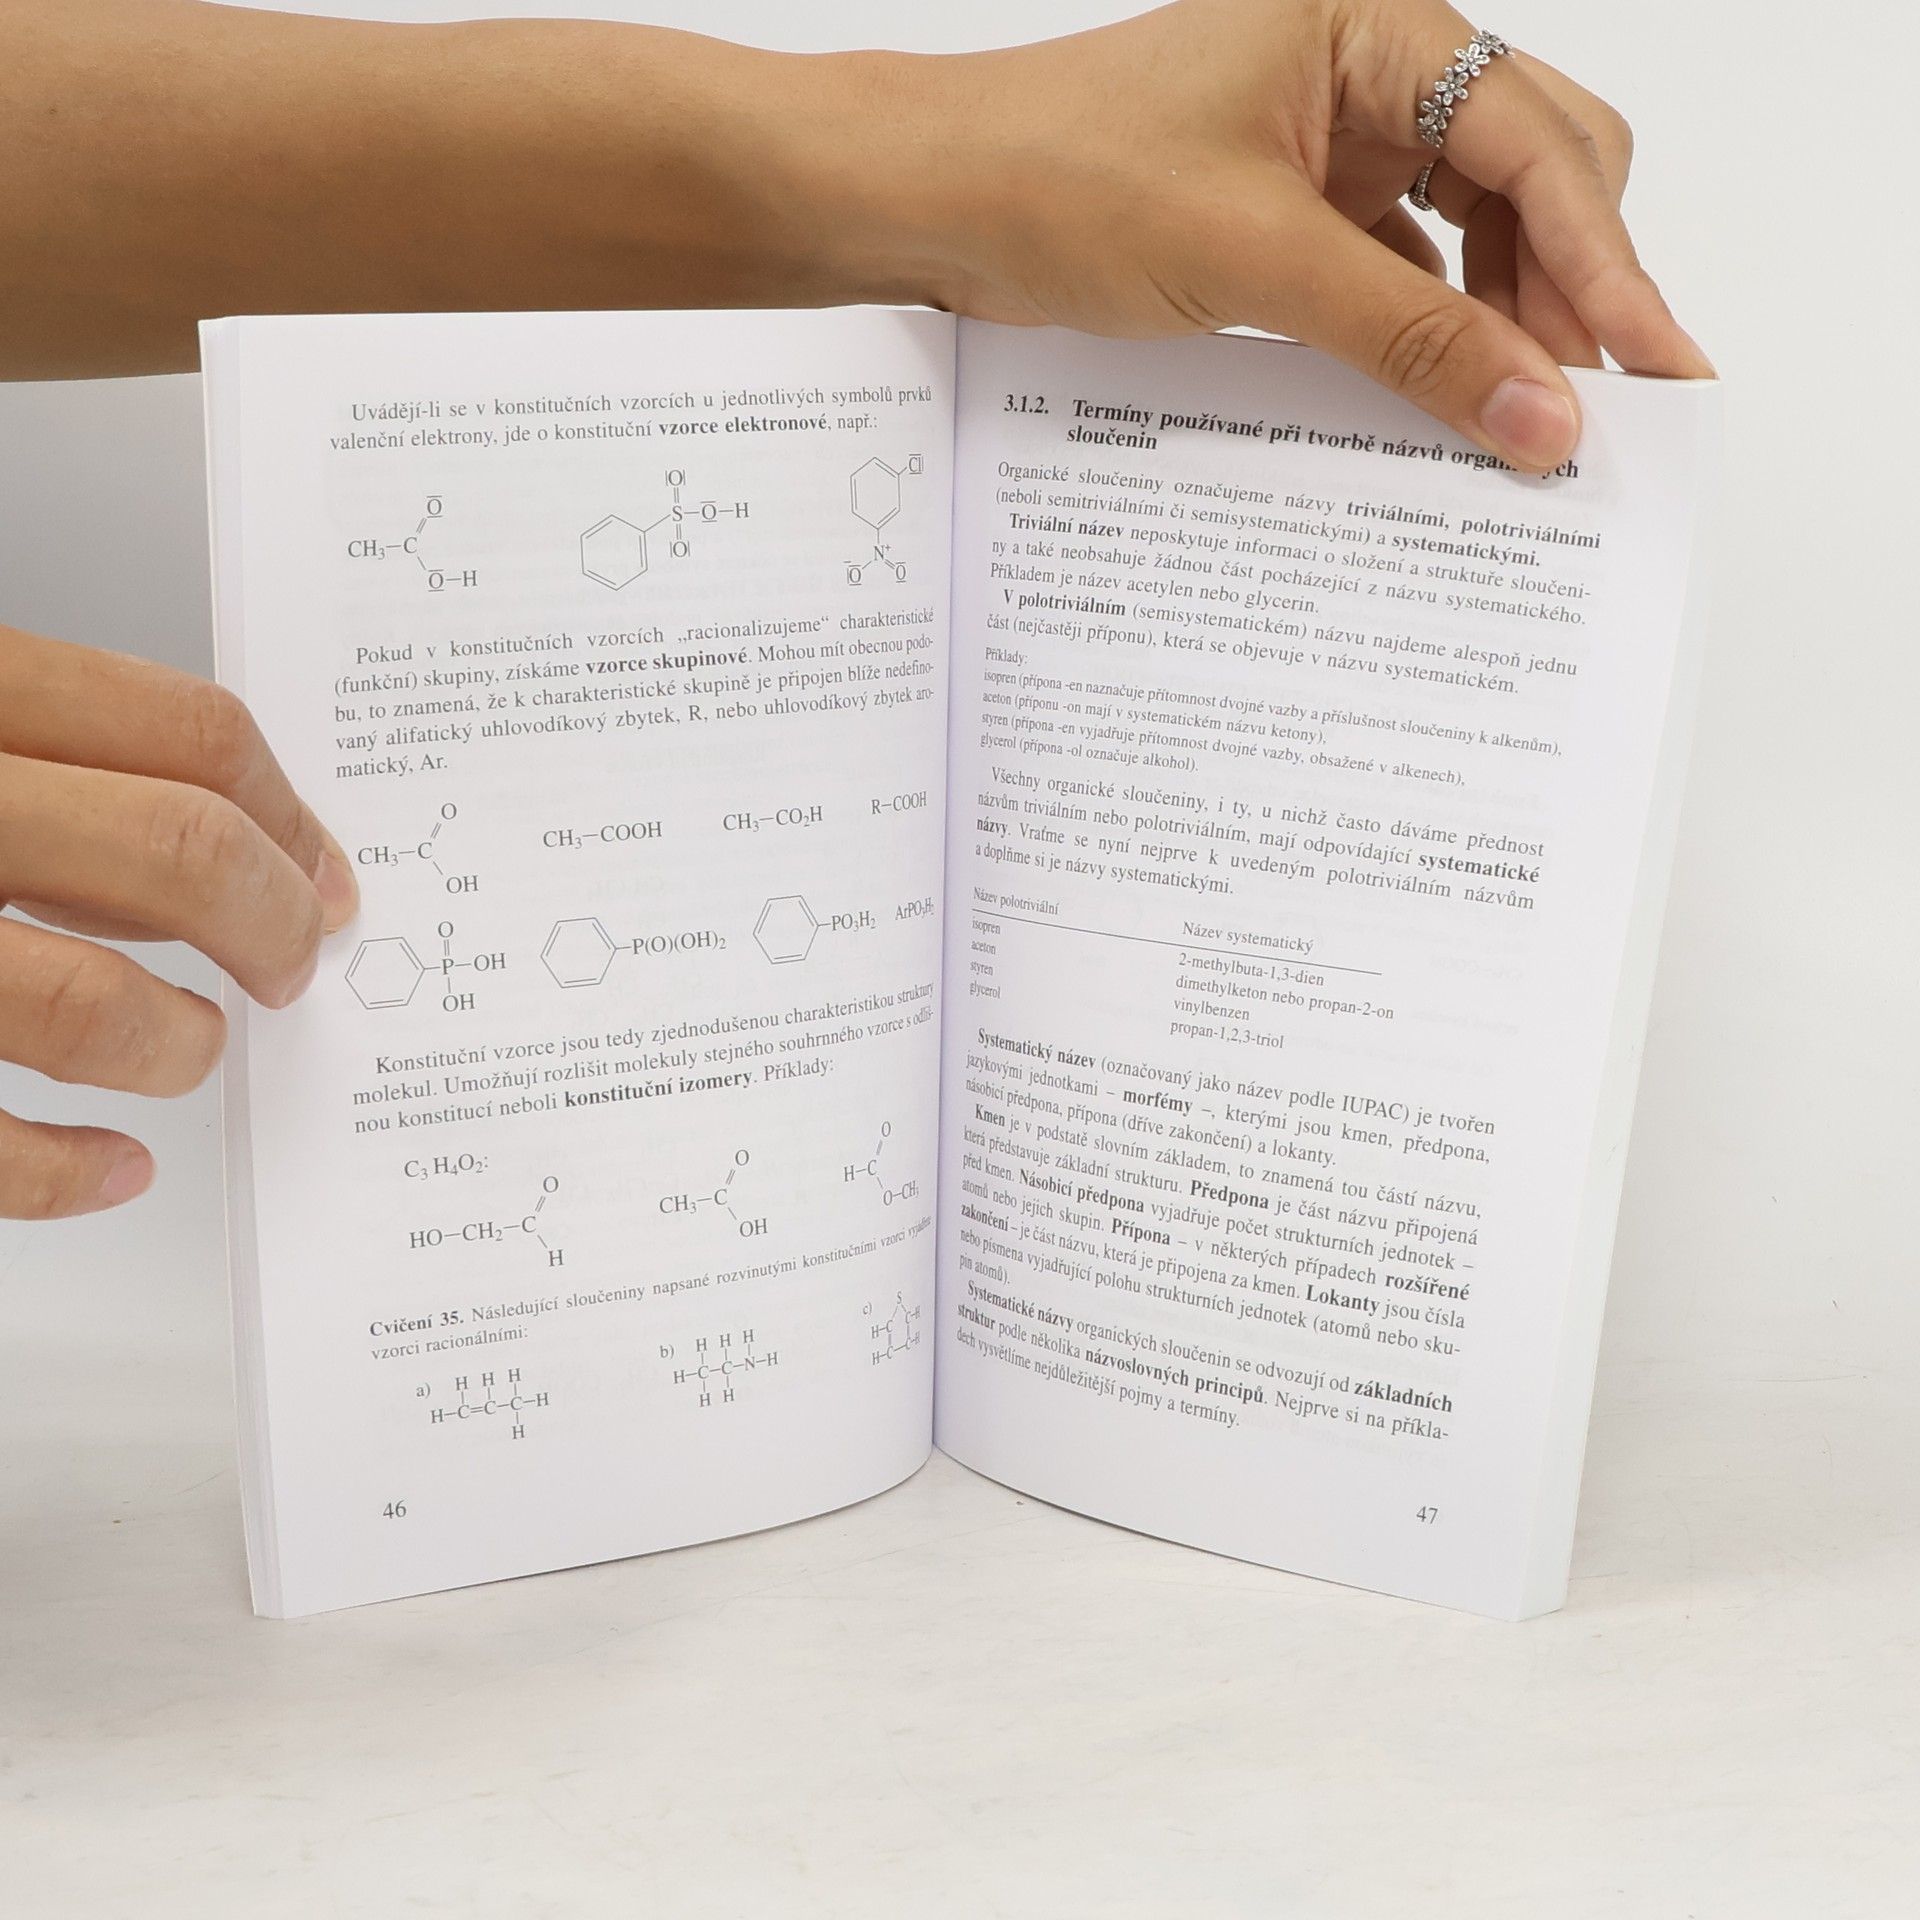 Uvádějí-li se v konstitučních vzorcích u jednotlivých symbolů prvků
valenční elektrony, jde o konstituční vzorce elektronové, např.:
Pokud v konstitučních vzorcích „racionalizujeme“ charakteristické
(funkční) skupiny, získáme vzorce skupinové. Mohou mít obecnou podo-
bu, to znamená, že k charakteristické skupině je připojen blíže nedefino-
vaný alifatický uhlovodíkový zbytek, R, nebo uhlovodíkový zbytek aro-
matický, Ar.
CH3–C O OH CH3–COOH CH3–CO2H R–COOH
O P–OH OH –P(O)(OH)2 –PO3H2 ArPO3H2
Konstituční vzorce jsou tedy zjednodušenou charakteristikou struktury
molekul. Umožňují rozlišit molekuly stejného souhrnného vzorce s odliš-
nou konstitucí neboli konstituční izomery. Příklady:
C3 H4O2:
HO–CH2–C O H CH3–C O OH H–C O O–CH3
Cvičení 35. Následující sloučeniny napsané rozvinutými konstitučními vzorci vyjádřete
vzorci racionálními:
a) H H H b) H H H c) S
H–C=C–C–H H–C–C–N–H H–C C–H
H H H H–C–C–H
46
3.1.2. Termíny používané při tvorbě názvů
sloučenin
Organické sloučeniny označujeme názvy triviálními, polotriviálními
(neboli semitriviálními či semisystematickými) a systematickými.
Triviální název neposkytuje informaci o složení a struktuře sloučeni-
ny a také neobsahuje žádnou část pocházející z názvu systematického.
Příkladem je název acetylen nebo glycerin.
V polotriviálním (semisystematickém) názvu najdeme alespoň jednu
část (nejčastěji příponu), která se objevuje v názvu systematickém.
Příklady:
isopren (přípona -en naznačuje přítomnost dvojné vazby a příslušnost sloučeniny k alkenům),
aceton (příponu -on mají v systematickém názvu ketony),
styren (přípona -en vyjadřuje přítomnost dvojné vazby, obsažené v alkenech),
glycerol (přípona -ol označuje alkohol).
Všechny organické sloučeniny, i ty, u nichž často dáváme přednost
názvům triviálním nebo polotriviálním, mají odpovídající systematické
názvy. Vraťme se nyní nejprve k uvedeným polotriviálním názvům
a doplňme si je názvy systematickými.
Název polotriviální Název systematický
isopren 2-methylbuta-1,3-dien
aceton dimethylketon nebo propan-2-on
styren vinylbenzen
glycerol propan-1,2,3-triol
Systematický název (označovaný jako název podle IUPAC) je tvořen
jazykovými jednotkami – morfémy –, kterými jsou kmen, předpona,
násobicí předpona, přípona (dříve zakončení) a lokanty.
Kmen je v podstatě slovním základem, to znamená tou částí názvu,
která představuje základní strukturu. Předpona je část názvu připojená
před kmen. Násobicí předpona vyjadřuje počet strukturních jednotek –
atomů nebo jejich skupin. Přípona – v některých případech rozšířené
zakončení – je část názvu, která je připojena za kmen. Lokanty jsou čísla
nebo písmena vyjadřující polohu strukturních jednotek (atomů nebo sku-
pin atomů).
Systematické názvy organických sloučenin se odvozují od základních
struktur podle několika názvoslovných principů. Nejprve si na příkla-
dech vysvětlíme nejdůležitější pojmy a termíny.
47